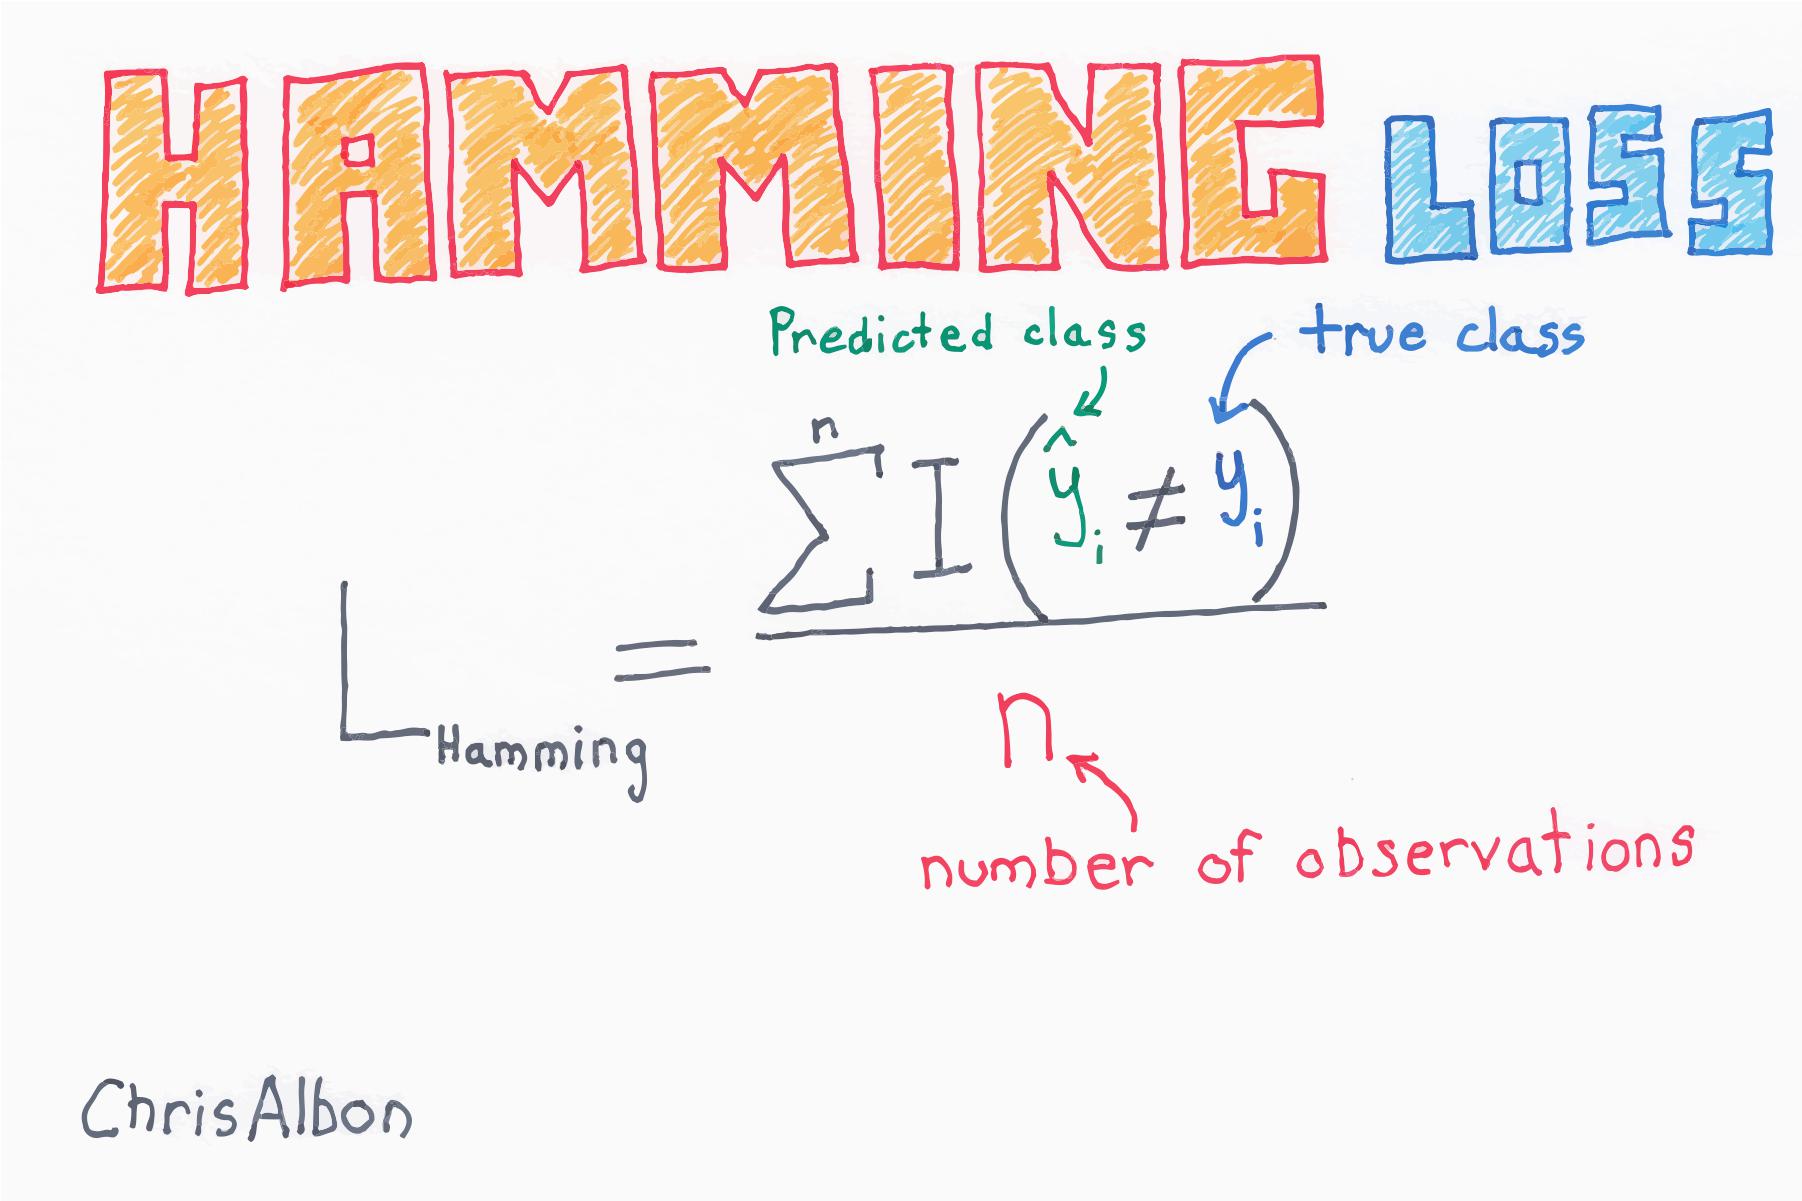 HAMMING LOSS
Predicted class
true class
n
∑ I (ŷᵢ ≠ yᵢ)
L Hamming =
n
number of observations
ChrisAlbon